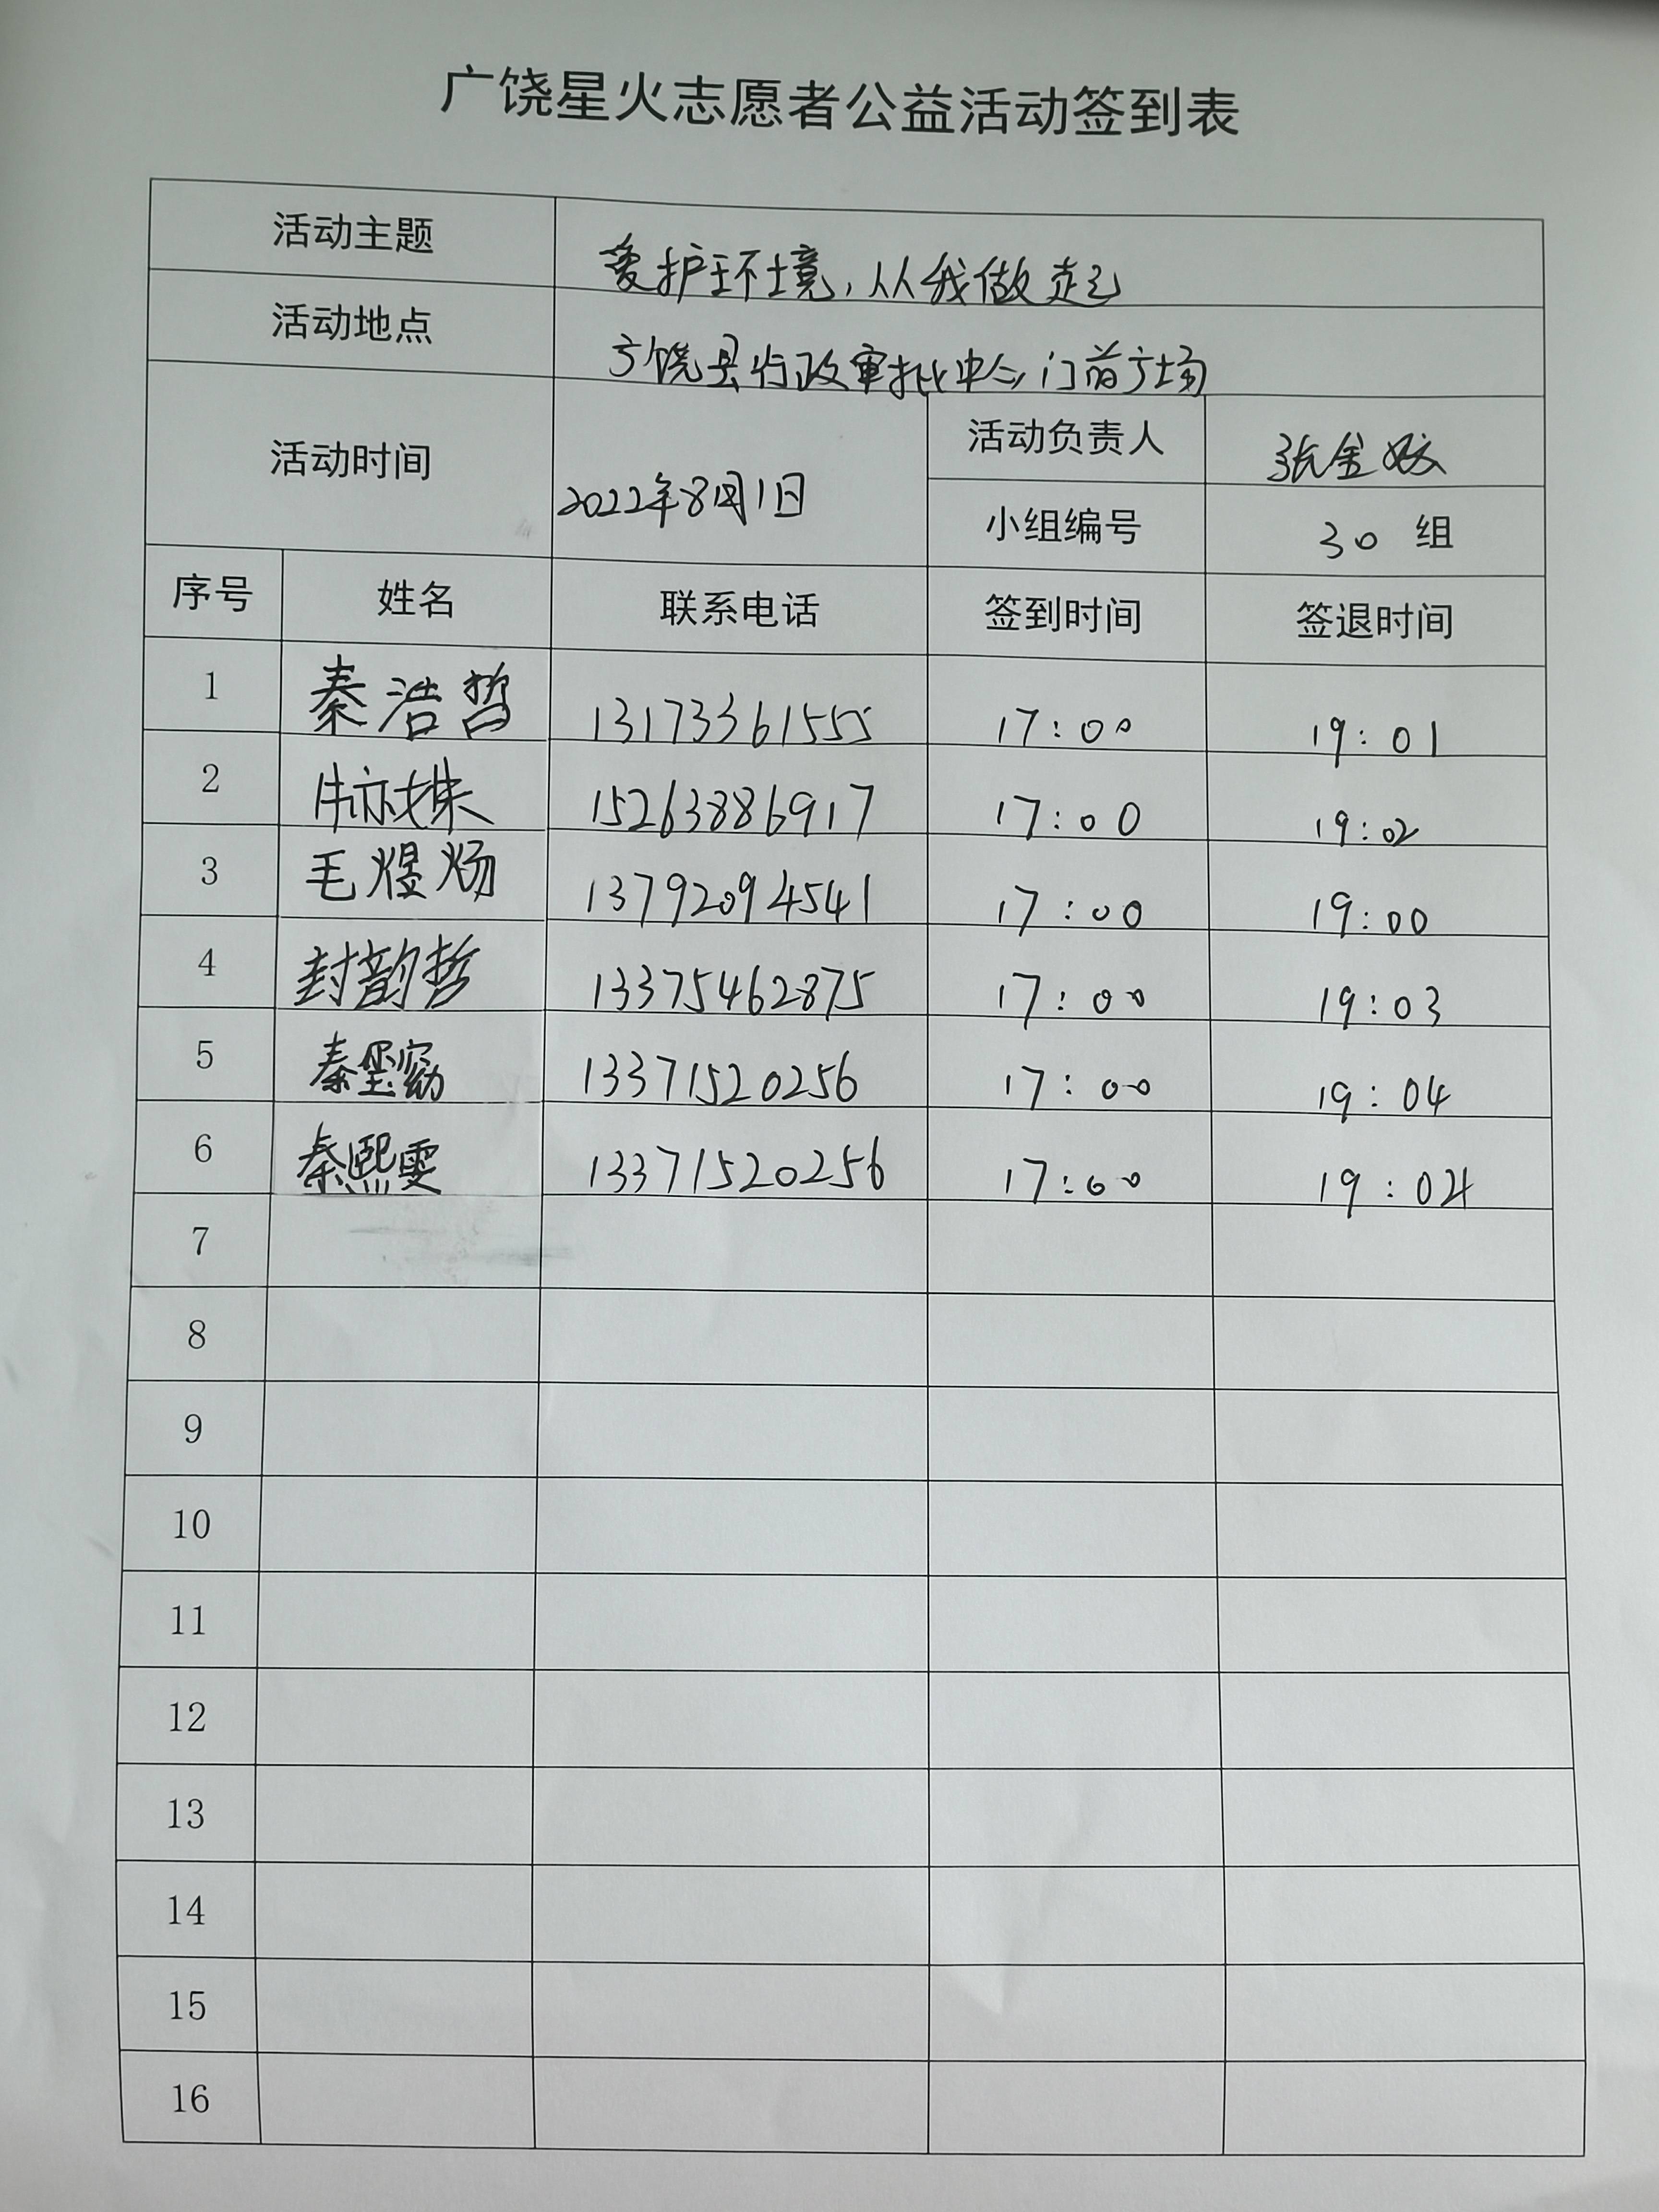 广饶星火志愿者公益活动签到表
活动主题 爱护环境，从我做起
活动地点 广饶县行政审批中心门前广场
活动时间 2022年8月1日 活动负责人 张金姣
小组编号 30 组
序号 姓名 联系电话 签到时间 签退时间
1 秦浩哲 13173361555 17:00 19:01
2 牛亦姝 15263886917 17:00 19:02
3 毛煜炀 13792094541 17:00 19:00
4 封韵哲 13375462875 17:00 19:03
5 秦 13371520256 17:00 19:04
6 秦熙雯 13371520256 17:00 19:04
7
8
9
10
11
12
13
14
15
16